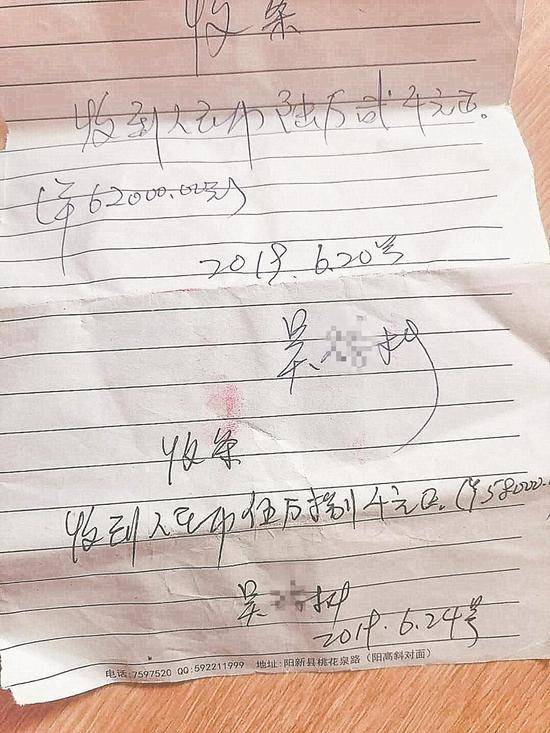 收条
收到人民币陆万贰千元正。
(￥62000.00元)
2019.6.20号
吴
收条
收到人民币伍万捌千元正.(￥58000.
吴
2019.6.24号
电话:7597520 QQ:592211999 地址:阳新县桃花泉路（阳高斜对面）